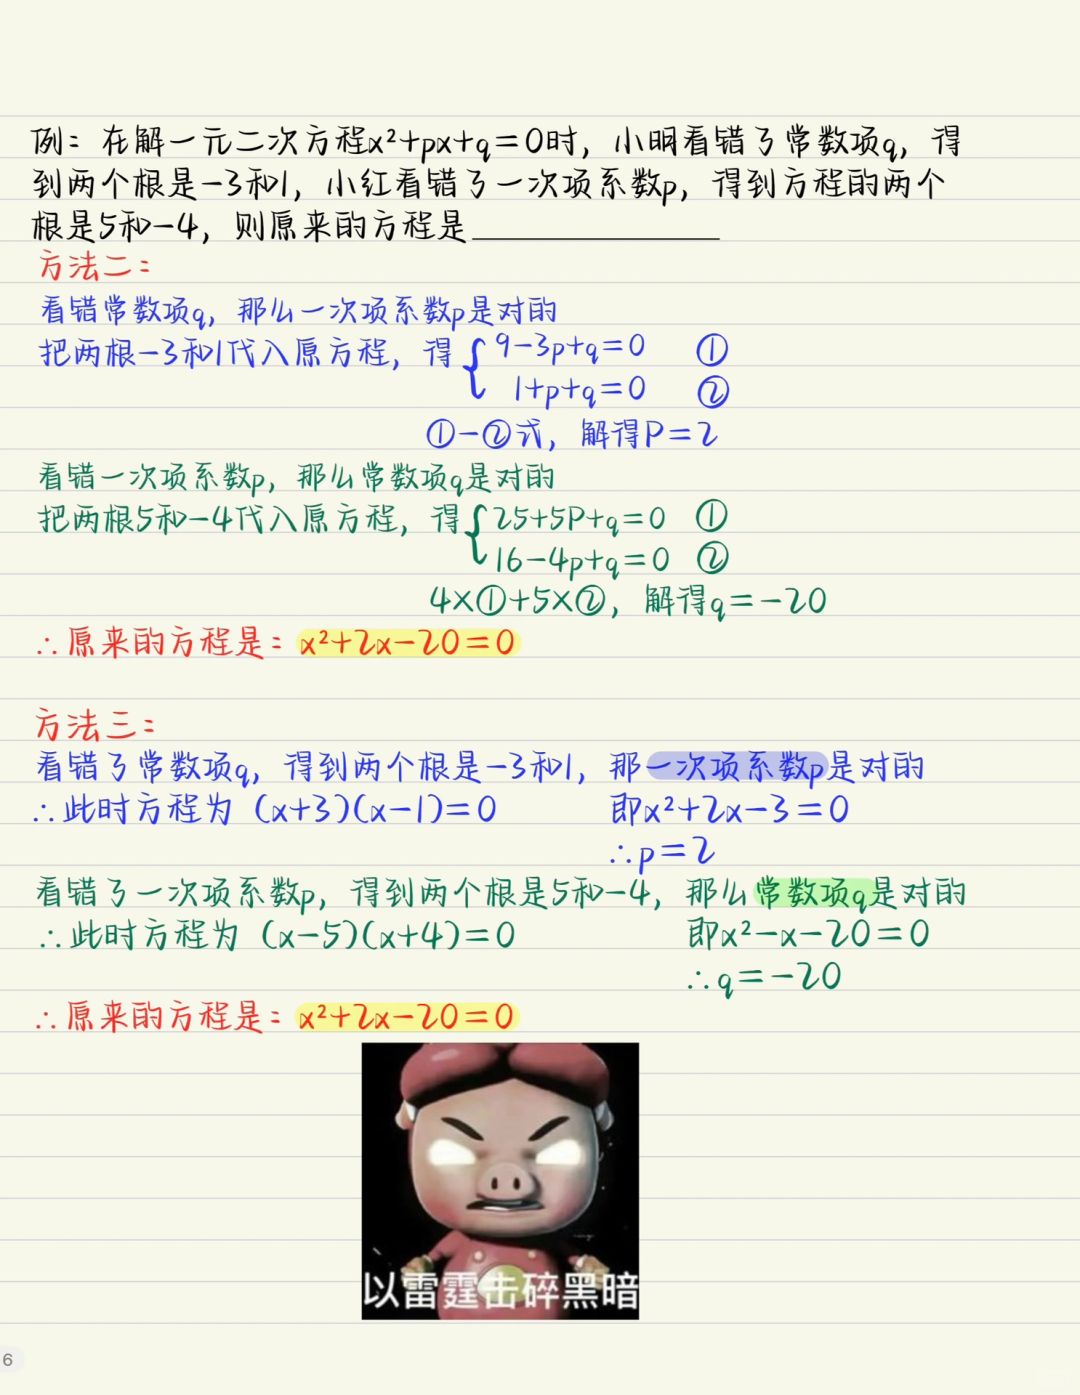 例：在解一元二次方程x²+px+q=0时，小明看错了常数项q，得
到两个根是-3和1，小红看错了一次项系数p，得到方程的两个
根是5和-4，则原来的方程是______________
方法二：
看错常数项q，那么一次项系数p是对的
把两根-3和1代入原方程，得{9-3p+q=0 ①
1+p+q=0 ②
①-②式，解得P=2
看错一次项系数p，那么常数项q是对的
把两根5和-4代入原方程，得{25+5P+q=0 ①
16-4p+q=0 ②
4×①+5×②，解得q=-20
∴原来的方程是：x²+2x-20=0
方法三：
看错了常数项q，得到两个根是-3和1，那一次项系数p是对的
∴此时方程为（x+3)(x-1)=0 即x²+2x-3=0
∴p=2
看错了一次项系数p，得到两个根是5和-4，那么常数项q是对的
∴此时方程为（x-5)(x+4)=0 即x²-x-20=0
∴q=-20
∴原来的方程是：x²+2x-20=0
以雷霆击碎黑暗
6